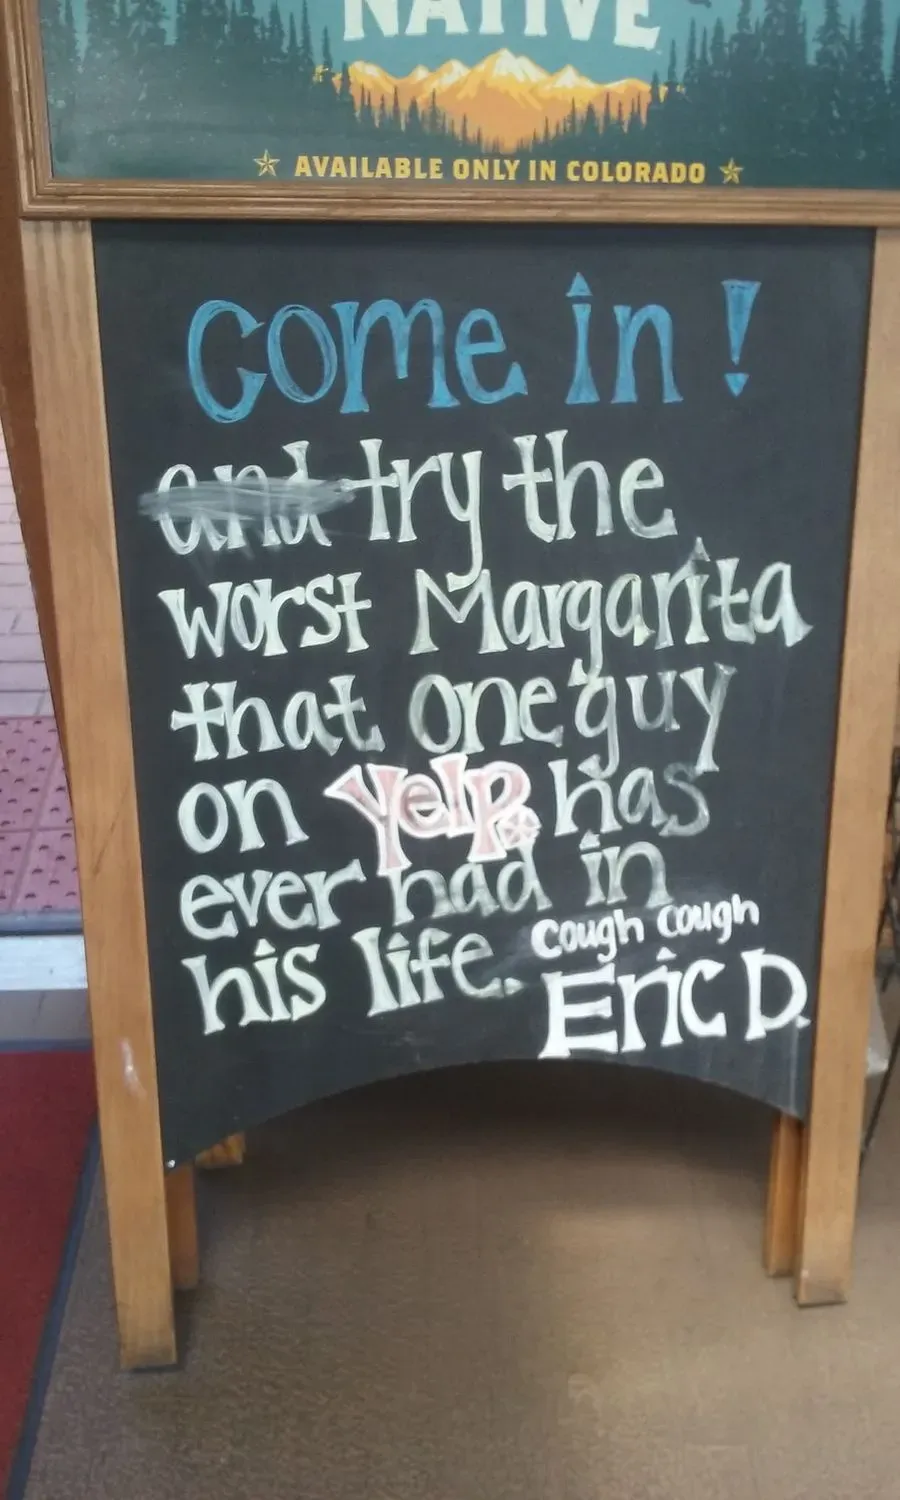 NATIVE
AVAILABLE ONLY IN COLORADO
Come in!
and try the
worst Margarita
that one guy
on yelp has
ever had in
his life.
Cough Cough
Eric D.